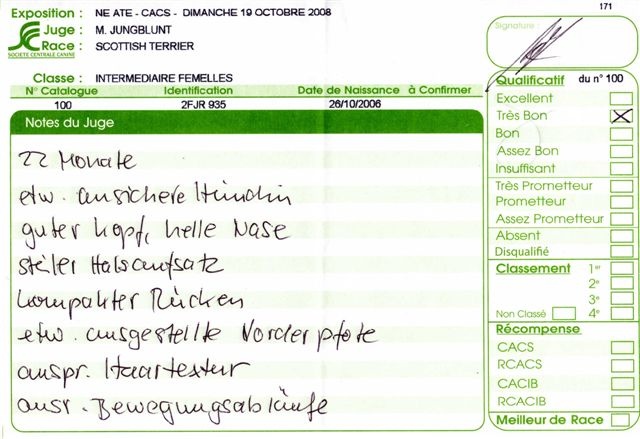 171
Exposition : NE ATE - CACS - DIMANCHE 19 OCTOBRE 2008
Juge : M. JUNGBLUNT
Race : SCOTTISH TERRIER
SOCIETE CENTRALE CANINE
Classe : INTERMEDIAIRE FEMELLES
N° Catalogue Identification Date de Naissance à Confirmer
100 2FJR 935 26/10/2006
Notes du Juge
22 Monate
etw. unsichere Hündin
guter Kopf, helle Nase
steiler Halsaufsatz
kompakter Rücken
etw. ausgestellte Vorderpfote
anspr. Haartextur
ausr. Bewegungsabläufe
Signature :
Qualificatif du n° 100
Excellent
Très Bon X
Bon
Assez Bon
Insuffisant
Très Prometteur
Prometteur
Assez Prometteur
Absent
Disqualifié
Classement 1er
2e
3e
Non Classé 4e
Récompense
CACS
RCACS
CACIB
RCACIB
Meilleur de Race